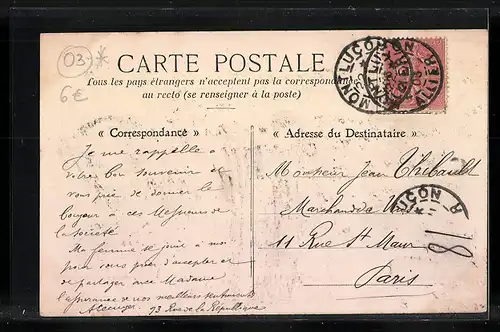 03 *
6€
CARTE POSTALE
Tous les pays étrangers n'acceptent pas la correspondance
au recto (se renseigner à la poste)
MONTLUÇON
ALLIER
« Correspondance »
Je me rappelle à
votre bon souvenir &
vous prie de donner le
bonjour à ces Messieurs de
la société
Ma femme se joint à moi
pour vous prier d'accepter et
de partager avec Madame
l'assurance de nos meilleurs sentiments
93 Rue de la République
« Adresse du Destinataire »
Monsieur Jean Thibault
Marchand de Vins
11 Rue St Maur
Paris
UÇON R
18